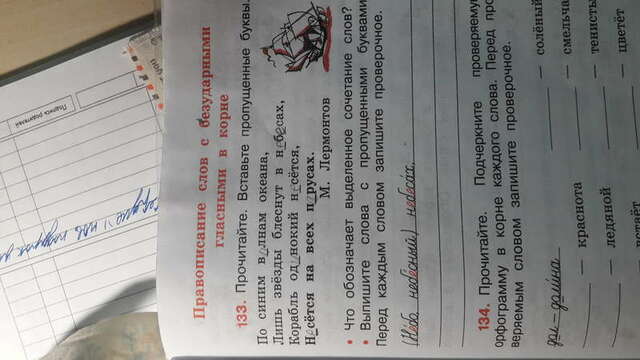 Правописание слов с безударными
гласными в корне
133. Прочитайте. Вставьте пропущенные буквы.
По синим волнам океана,
Лишь звёзды блеснут в небесах,
Корабль одинокий несётся,
Несётся на всех парусах.
М. Лермонтов
• Что обозначает выделенное сочетание слов?
• Выпишите слова с пропущенными буквами.
Перед каждым словом запишите проверочное.
(Небо, небесный) небесах.
134. Прочитайте. Подчеркните проверяемую
орфограмму в корне каждого слова. Перед про-
веряемым словом запишите проверочное.
— солёный
— краснота
— смельча
— ледяной
— тенисты
— цветёт
Подпись родителей